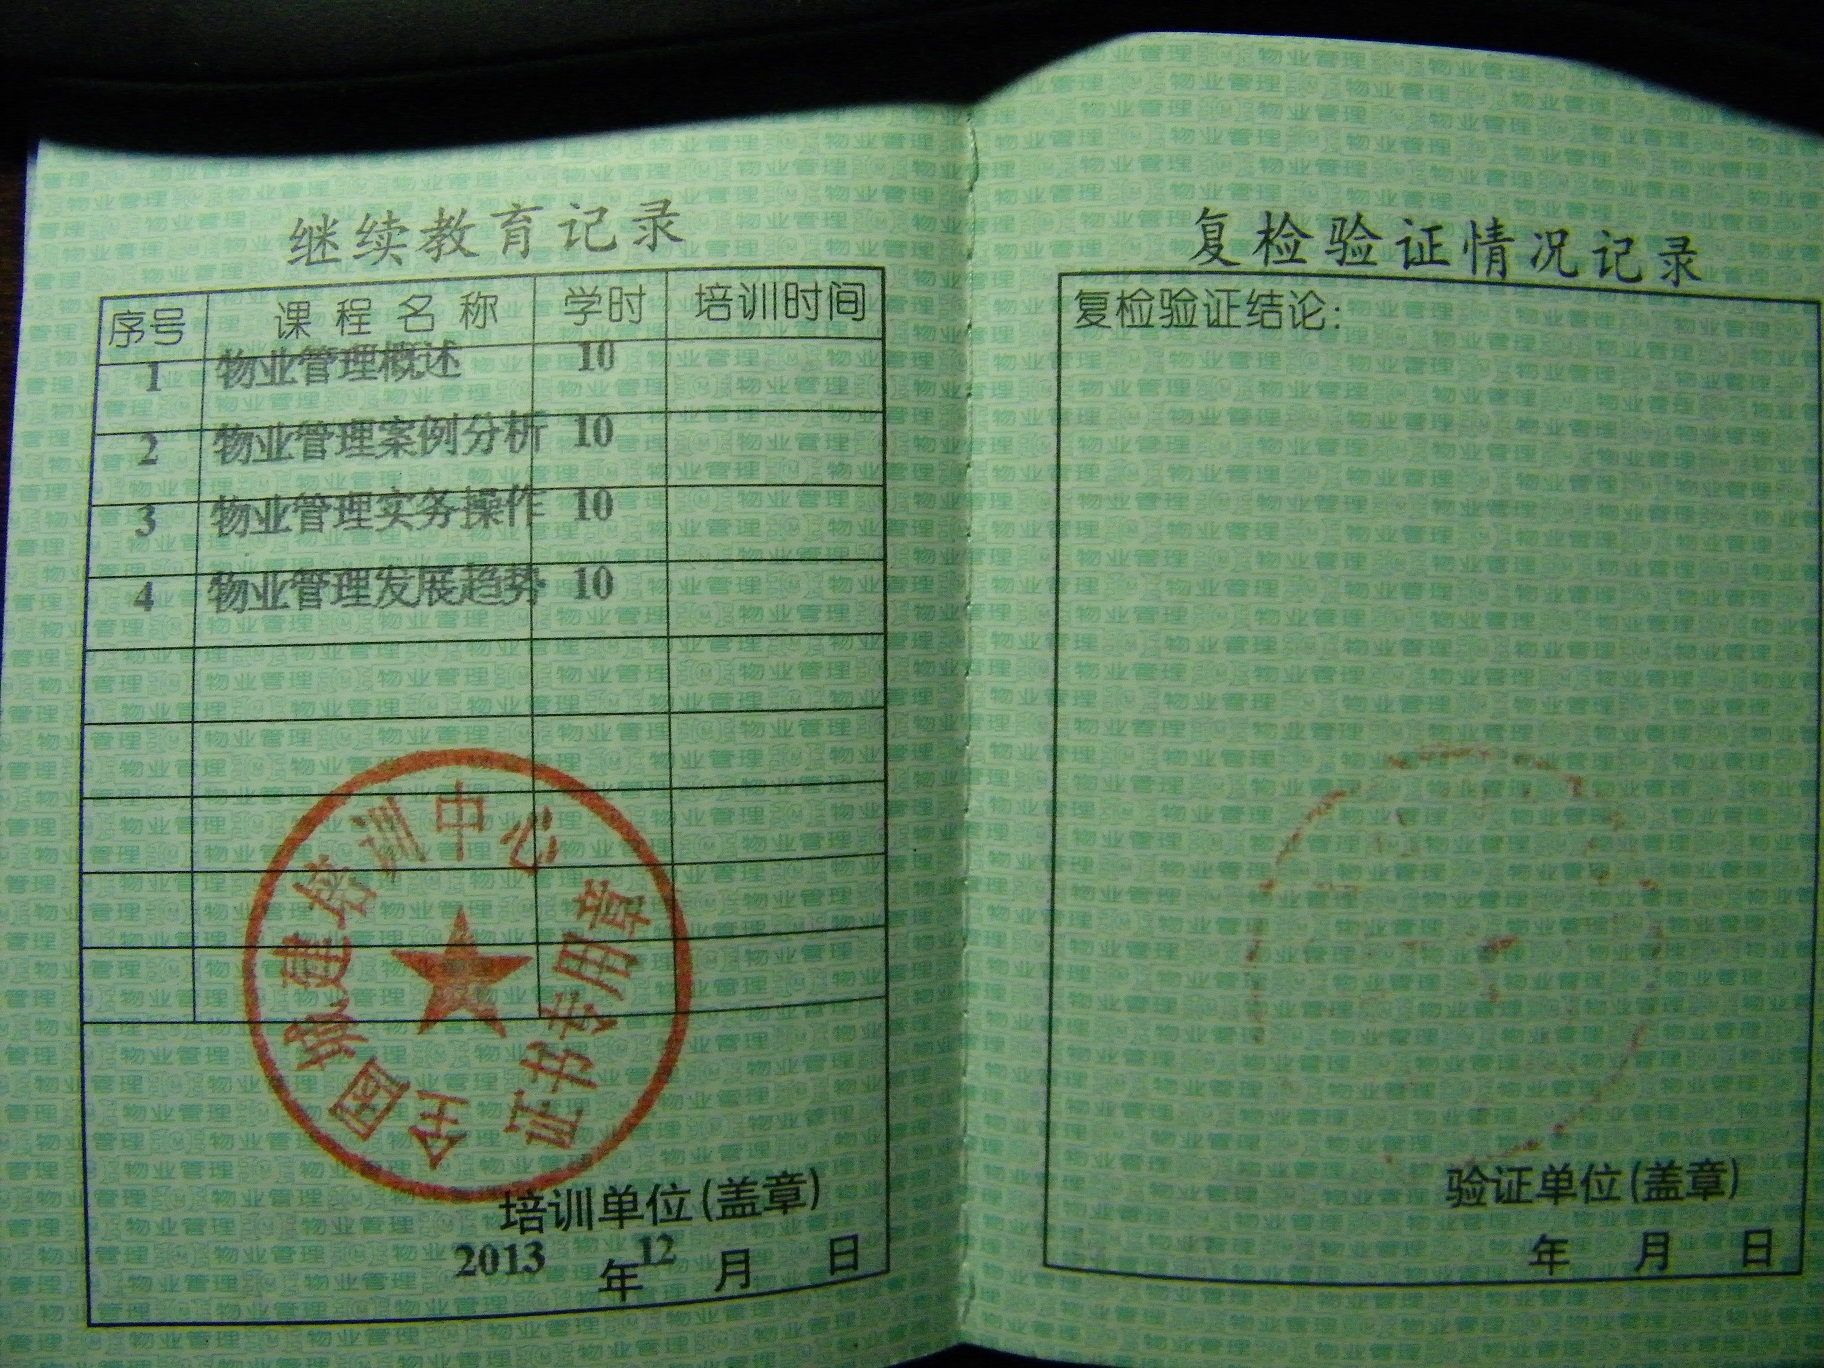 继续教育记录
序号 课程名称 学时 培训时间
1 物业管理概述 10
2 物业管理案例分析 10
3 物业管理实务操作 10
4 物业管理发展趋势 10
全国城建培训中心
证书专用章
培训单位(盖章)
2013年12月 日
复检验证情况记录
复检验证结论:
验证单位(盖章)
年 月 日